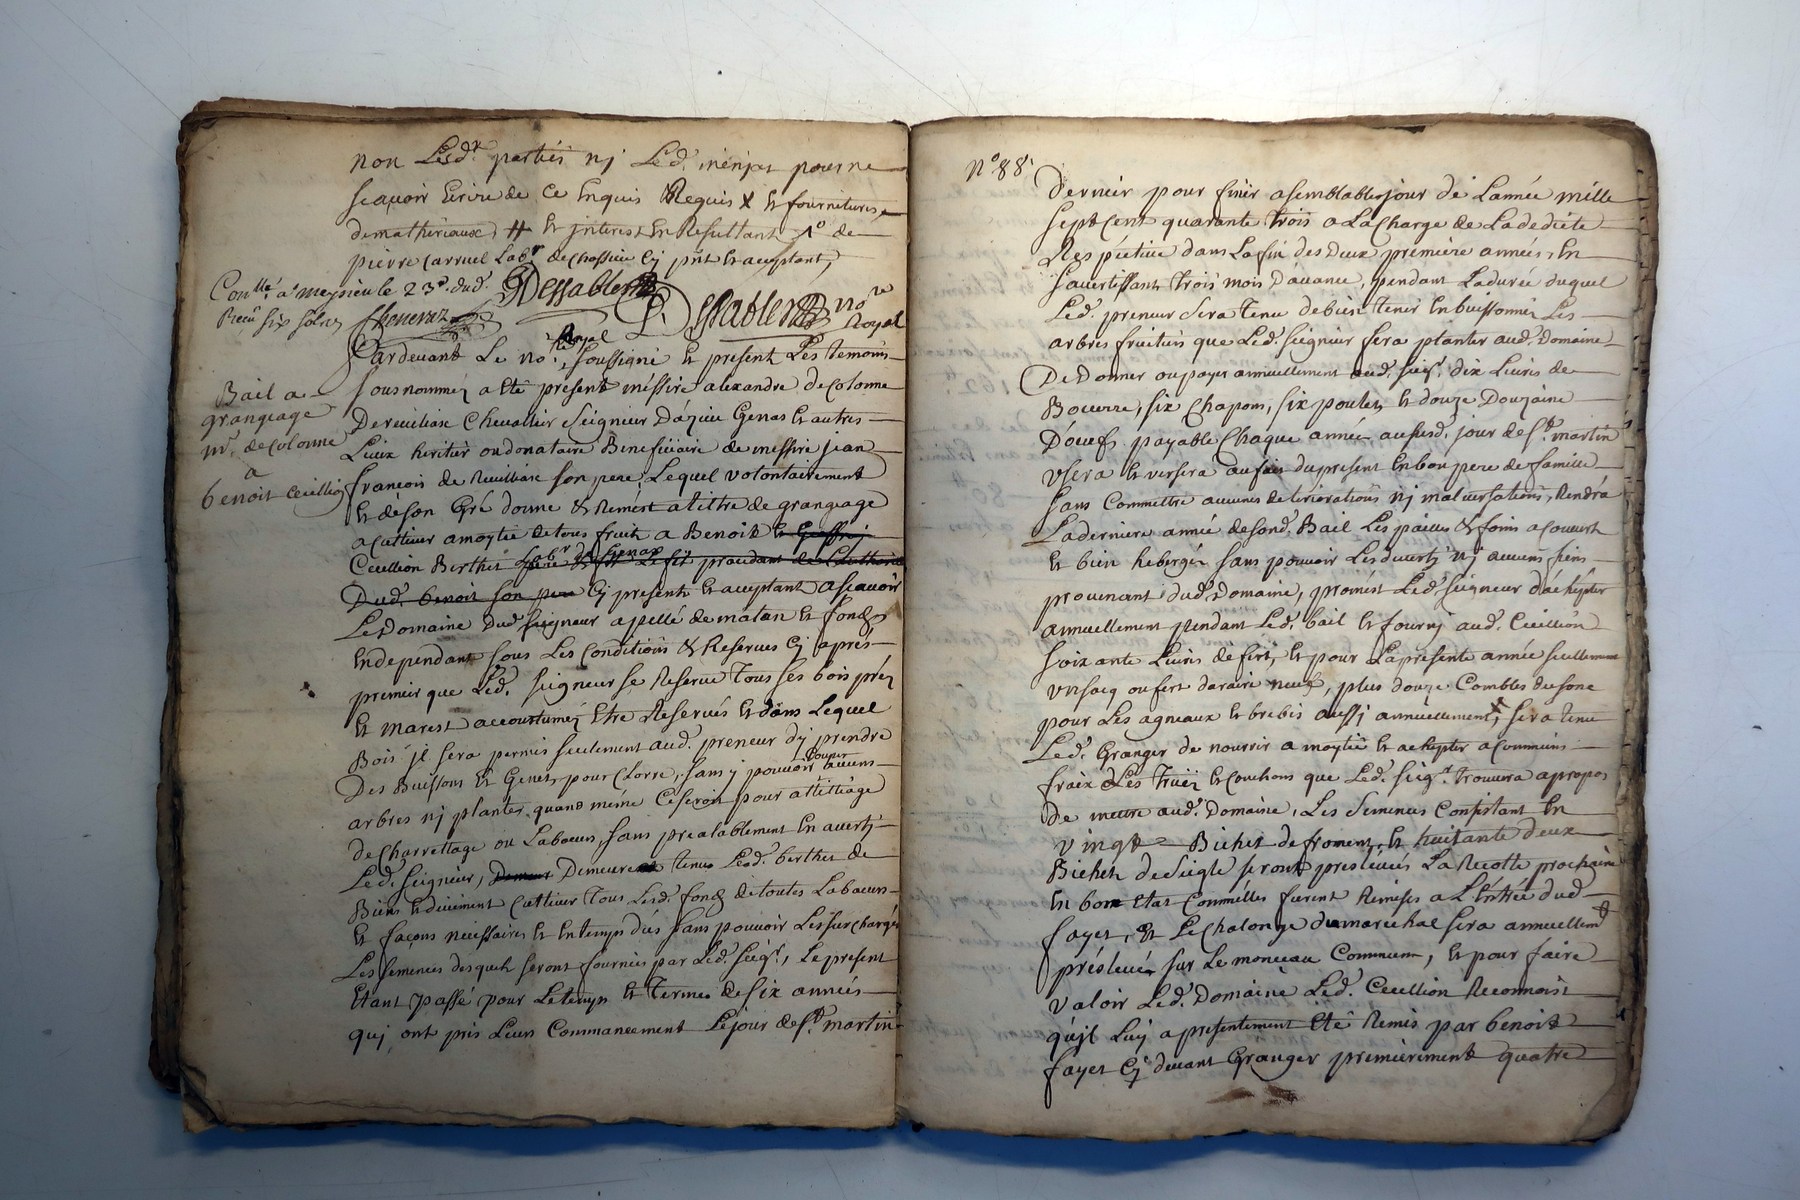 non Lesd. parties nj Led. menjer pour ne
scavoir Ecrire de Ce Enquis Requis X et fournitures
de matheriaux, # et jnterest En Resultant de
pierre Carruel Lab.r de Chassieu Cj pnt et acceptant,
Con.lle a meysieu le 23.e dud.
Receu six sols
GDessables
Dessables no.re
Royal
Pardevant Le no.re Royal soussigné et present Les temoins
sousnommez a Eté présent messire alexandre de Colonne
Bail a
grangeage
mr. de Colonne
a
benoit Cecillion
De reuiliase Cheuallier Seigneur D'azieu Genas et autres
Lieux heritier ou donataire Beneficiaire de messire jean
francois de Reuilliase son pere, Lequel volontairement
et de son Gré donne & Remest a tittre de grangeage
a Cultiuer a moytié de tous fruits a Benoit
Cecillion Berthet Lab.r de Genas
Dud. benoit son pere Cj present et acceptant a scauoir
Le Domaine dud. seigneur apellé de matan et fonds
En dependant sous Les Conditions & Reserues Cj aprés
premier que Led. seigneur se Reserue Tous ses bois préz
et marest accoustumez Etre Reserués et dans Lequel
Bois jl sera permis seulement aud. preneur d'y prendre
Des Buissons et Genets pour Clorre, sans y pouvoir Couper aucuns
arbres nj plantes quand méme Ce seroit pour attittiage
de Charrettage ou Labours, sans prealablement En auertj
Led. seigneur, Demeurent tenus Led. berthet de
Biens et deuement Cultiuer Tous Lesd. fonds de toutes Labours
et façons necessaires et En temps dûs sans pouvoir Les surcharger
Les semences desquels seront fournies par Led. seigr., Le present
Etant passé pour Le temps et Terme de six années
quj ont pris Leur Commancement Le jour de St. martin
No 88
Dernier pour finir a semblables jour de L'année mille
sept Cent quarante trois a La Charge de La dedite
Respéctiue dans La fin des Deux premiere années, En
s'auertissants trois mois D'auance, pendant La durée duquel
Led. preneur sera Tenu de bien tenir En buissonnez Les
arbres fruitiers que Led. seigneur fera planter aud. Domaine
De Donner ou payer annuellement aud. seigr. dix Liures de
Beurre, six Chapons, six poulets et douze Douzaine
D'oeufs payable Chaque année au susd. jour de St. martin
Vsera et versera au fait du present En bon pere de famille
sans Commettre aucunes deteriorations nj maluersations, Rendra
La derniere année de sond. Bail Les pailles & foins a Couuert
et bien hebergéz sans pouvoir Les diuertj nj aucuns fiens
prouenant dud. Domaine, promest Led. seigneur d'achepter
annuellement pendant Led. bail et fournj aud. Cecillion
soixante Liures de fert, et pour La presente année seullement
Vn socq ou fert d'araire neuf, plus douze Combles du sone
pour Les agneaux et brebis aussj annuellement, sera tenu
Led. Granger de nourrir a moytié et achepter a Communs
fraix Les Truiez et Couchons que Led. seigr. trouuera apropos
De mettre aud. Domaine, Les semences Consistant En
Vingt Bichet de froment, et huitante deux
Bichets de seigle seront préleuées La Recolte prochaine
En bon Etat Comm'elles furent Remises a L'Entrée dud.
fayet, Et Le Chalonge du marechal sera annuellemt
présleué sur Le monceau Commun, et pour faire
Valoir Led. Domaine Led. Cecillion Reconnoist
qu'jl Luj a presentement Eté Remis par benoit
fayet Cj deuant Granger premierement quatre